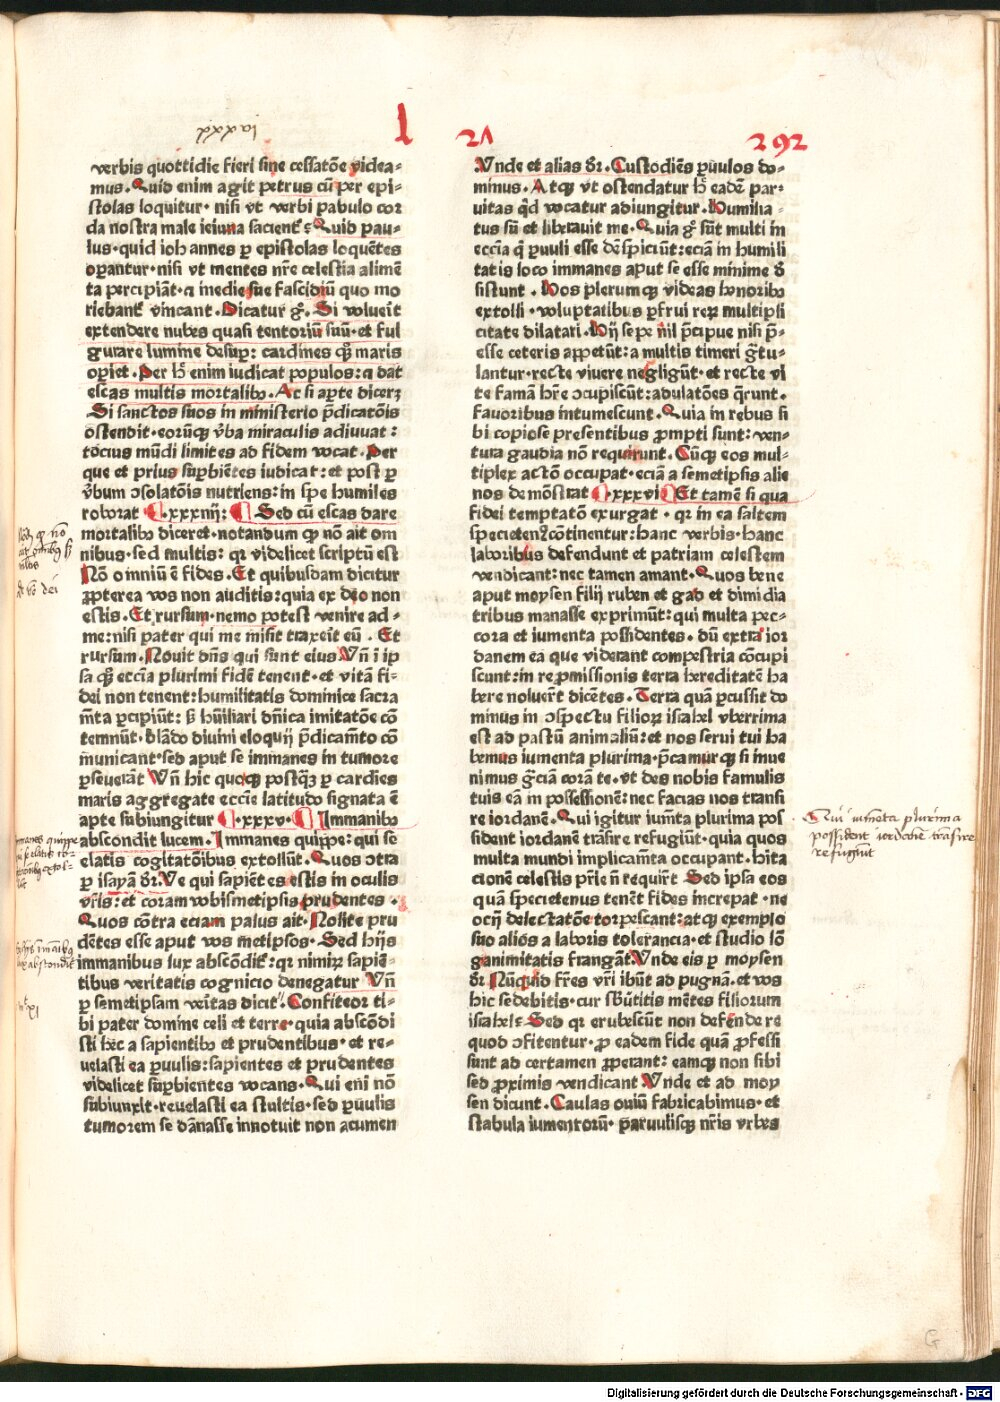 l 21 292
verbis quottidie fieri sine cessatōe videa⸗
mus. Quid enim agit petrus cū per epi⸗
stolas loquitur · nisi vt verbi pabulo cor
da nostra male ieiuna sacient᷑ Quid pau⸗
lus · quid ioh annes ꝑ epistolas loquētes
oꝑantur · nisi vt mentes nr̄e celestia alimē
ta percipiāt · ⁊ inedie sue fascidiū quo mo
riebant᷑ vincant. Dicatur gͦ. Si voluerit
extendere nubes quasi tentoriū suū · et ful
gurare lumine desuꝑ: cardines qꝫ maris
oꝑiet. Per h̄ enim iudicat populos: ⁊ dat
escas multis mortalibꝰ. Ac si aꝑte dicerꝫ
Si sanctos suos in ministerio p̄dicatōis
ostendit · eorūqꝫ v̄ba miraculis adiuuat:
tocius mūdi limites ad fidem vocat. Per
que et prius suꝑbiētes iudicat: et post ꝑ
v̄bum ɔsolatōis nutriens: in spe humiles
roborat ¶ .xxxiiij: ¶ Sed cū escas dare
mortalibꝰ diceret · notandum qꝫ nō ait om
nibus · sed multis: qꝛ videlicet scriptū est
Nō omniū ē fides. Et quibusdam dicitur
ꝓpterea vos non auditis: quia ex deo non
estis. Et rursum · nemo potest venire ad⸗
me: nisi pater qui me misit traxerit eū. Et
rursum. Nouit dn̄s qui sunt eius Vn̄ ī ip
sa qꝫ eccīa plurimi fidē tenent · et vitā fi⸗
dei non tenent: humilitatis dominice sacra
mēta ꝑcipiūt: sꝫ hūiliari dn̄ica imitatōe cō
temnūt · blādo diuini eloquij p̄dicamēto cō
municant · sed aput se immanes in tumore
ꝑseuerāt Vn̄ hic quoqꝫ postqꝫ ꝑ cardies
maris aggregate eccīe latitudo signata ē
apte subiungitur ¶ .xxxv. ¶ Immanibꝰ
abscondit lucem. Immanes quippe: qui se
elatis cogitatōibus extollūt. Quos ɔtra
ꝑ isayā dr̄. Ve qui sapiētes estis in oculis
vr̄is: et coram vobismetipsis prudentes.
Quos cōtra eciam palus ait. Nolite pru
dētes esse aput vos metipsos. Sed hijs
immanibus lux abscōdit᷑: qꝛ nimiꝝ sapiē⸗
tibus veritatis cognicio denegatur Vn̄
ꝑ semetipsam veritas dicit. Confiteor ti⸗
bi pater domine celi et terre · quia abscōdi
sti hec a sapientibꝰ et prudentibus · et re⸗
uelasti ea ꝑuulis: sapientes et prudentes
videlicet suꝑbientes vocans. Qui eni nō
subiunxit · reuelasti ea stultis · sed ꝑuulis
tumorem se dānasse innotuit non acumen
Vnde et alias dr̄. Custodiēs ꝑuulos do⸗
minus. Atqꝫ vt ostendatur h̄ eadē par⸗
uitas qd̄ vocatur adiungitur. Humilia⸗
tus sū et liberauit me. Quia gͦ sūt multi in
eccīa q̄ ꝑuuli esse despiciūt: eciā in humili
tatis loco immanes aput se esse minime dē
sistunt. Hos plerumqꝫ videas honoribꝰ
extolli · voluptatibus ꝑfrui reꝝ multipli
citate dilatari. Hij sepe nil p̄cipue nisi p̄⸗
esse ceteris appetūt: a multis timeri gr̄atu⸗
lantur · recte viuere negligūt · et recte vi
te famā hr̄e ɔcupiscūt: adulatōes q̄runt.
fauoribus intumescunt. Quia in rebus si
bi copiose presentibus ꝓmpti sunt: ven⸗
tura gaudia nō requirunt. Cūqꝫ eos mul⸗
tiplex actō occupat · eciā a semetipsis alie
nos demōstrat ¶ .xxxvi ¶ Et tamē si qua
fidei temptatō exurgat · qꝛ in ea saltem
specieteni continentur: hanc verbis · hanc
laboribus defendunt et patriam celestem
vendicant: nec tamen amant. Quos bene
aput moysen filij ruben et gad et dimidia
tribus manasse exprimūt: qui multa pec⸗
cora et iumenta possidentes · dū extra ior
danem ea que viderant compestria cōcupi
scunt: in reꝓmissionis terra hereditatē ha
bere noluer̄t dicētes. Terra quā ꝑcussit do
minus in ɔspectu filioꝝ israhel vberrima
est ad pastū animaliū: et nos serui tui ha
bemus iumenta plurima · p̄camur qꝫ si inue
nimus gr̄ciā corā te · vt des nobis famulis
tuis eā in possessionē: nec facias nos transi
re iordanē. Qui igitur iumēta plurima pos
sident iordanē trāsire refugiūt · quia quos
multa mundi implicamēta occupant · hita
cionē celestis pr̄ie n̄ requirūt Sed ipsa eos
quā specietenus tenēt fides increpat · ne
ocij delectatōe torpescant: atqꝫ exemplo
suo aliōs a laboris tolerancia · et studio lō
ganimitatis frangāt. Vnde eis ꝑ moysen
dr̄ Nūquid fr̄es vr̄i ibūt ad pugnā · et vos
hic sedebitis · cur sb̄ūtitis mētes filiorum
israhel Sed qꝛ erubescūt non defendere
quod ɔfitentur · ꝓ eadem fide quā ꝓfessi
sunt ad certamen ꝓꝑant: eamqꝫ non sibi
sed ꝓximis vendicant Vnde et ad moy
sen dicunt. Caulas ouiū fabricabimus · et
stabula iumentorū · paruulisqꝫ nr̄is vrbes
Qui iumēta plurima
possident iordanē trāsire
refugiūt
G
Digitalisierung gefördert durch die Deutsche Forschungsgemeinschaft - DFG